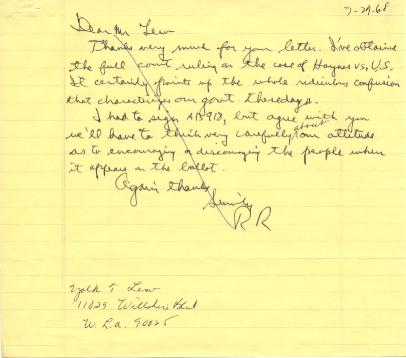 7-29-68
Dear Mr Lew
Thanks very much for your letter. I've obtained
the full court ruling on the case of Haynes vs. U.S.
It certainly points up the whole ridiculous confusion
that characterizes our govt. these days.
I had to sign AB 913, but agree with you
we'll have to think very carefully about our attitude
as to encouraging or discouraging the people when
it appears on the ballot.
Again thanks
Sincerely
RR
Lew
11029 Wilshire Blvd
W. L.a. 90025